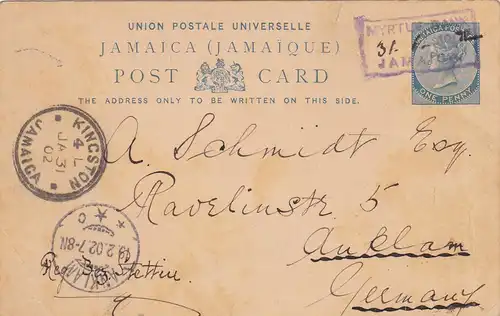 UNION POSTALE UNIVERSELLE
JAMAICA (JAMAÏQUE)
POST CARD
THE ADDRESS ONLY TO BE WRITTEN ON THIS SIDE.
MYRTLE BANK
31
JAMAICA
ONE PENNY
KINGSTON
4 L
JA 31
02
JAMAICA
A. Schmidt Esq.
Ravelinstr 5
Anklam
Germany
ANKLAM
2.02.7-8N.
C
Stettin